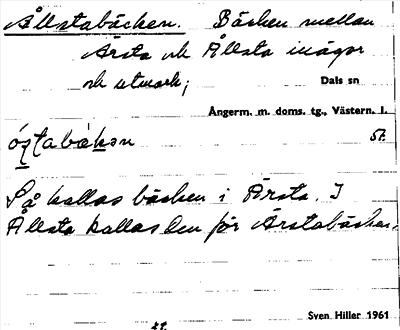 Ållstabäcken. Bäcken mellan
Ärsta och Ållsta inägor
och utmark;
Dals sn
Ångerm. m. doms. tg., Västern. l.
óʂtabàkən St.
Så kallas bäcken i Ärsta. I
Ållsta kallas den för Ärstabäcken.
Sven Hiller 1961